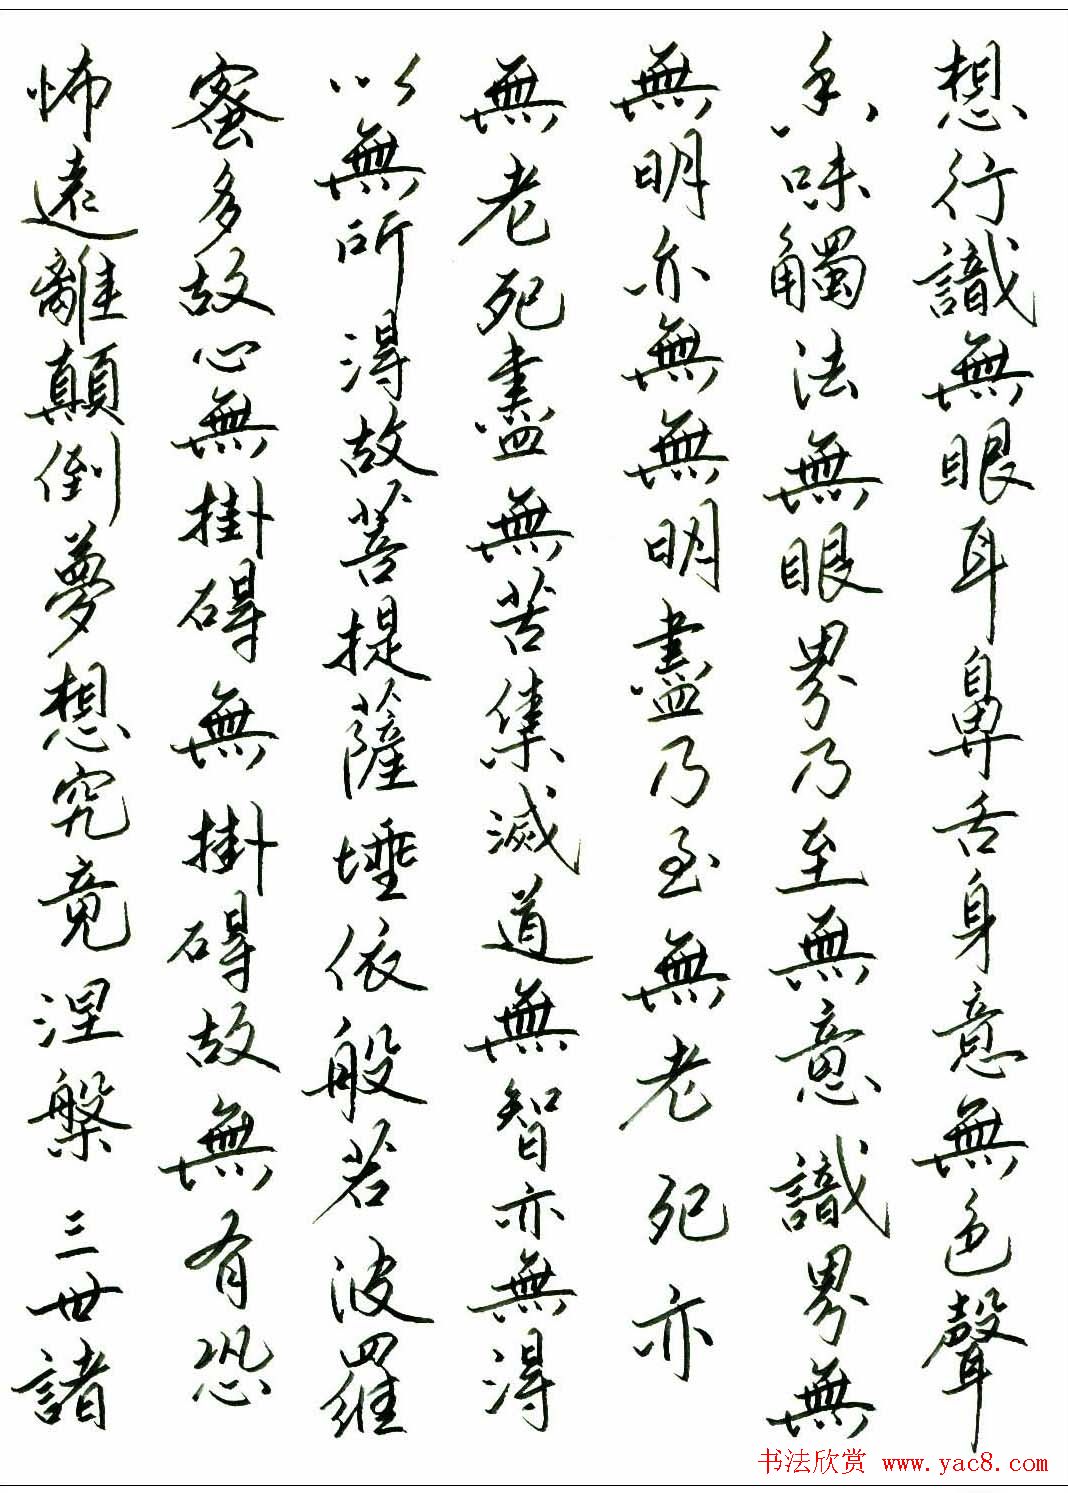 想行識無眼耳鼻舌身意無色聲
香味觸法無眼界乃至無意識界無
無明亦無無明盡乃至無老死亦
無老死盡無苦集滅道無智亦無得
以無所得故菩提薩埵依般若波羅
蜜多故心無掛碍無掛碍故無有恐
怖遠離顛倒夢想究竟涅槃三世諸
书法欣赏 www.yac8.com